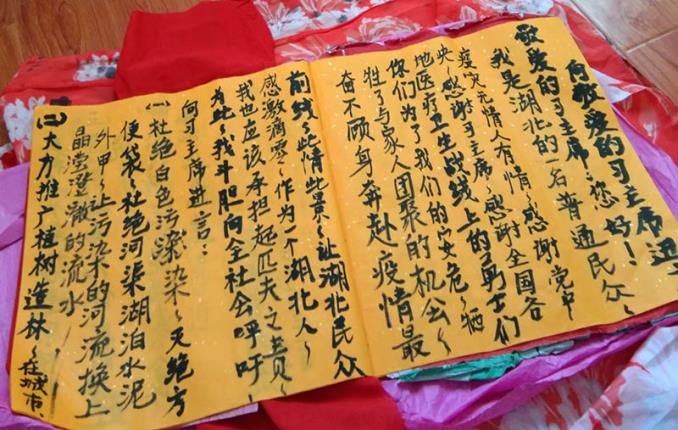 向敬爱的习主席进
敬爱的习主席：您好！
我是湖北的一名普通民众、
疫灾无情人有情、感谢党中
央、感谢习主席、感谢全国各
地医疗卫生战线上的勇士们
你们为了我们的安危、牺
牲了与家人团聚的机会、
奋不顾身奔赴疫情最
前线、此情此景、让湖北民众
感激滴零、作为一个湖北人、
我也应该承担起匹夫之责、
为此、我斗胆向全社会呼吁、
向习主席进言：
㈠杜绝白色污染、灭绝方
便袋、杜绝河渠湖泊水泥
外甲、让污染的河流换上
晶滢澄澈的流水、
㈡大力推广植树造林、在城市、